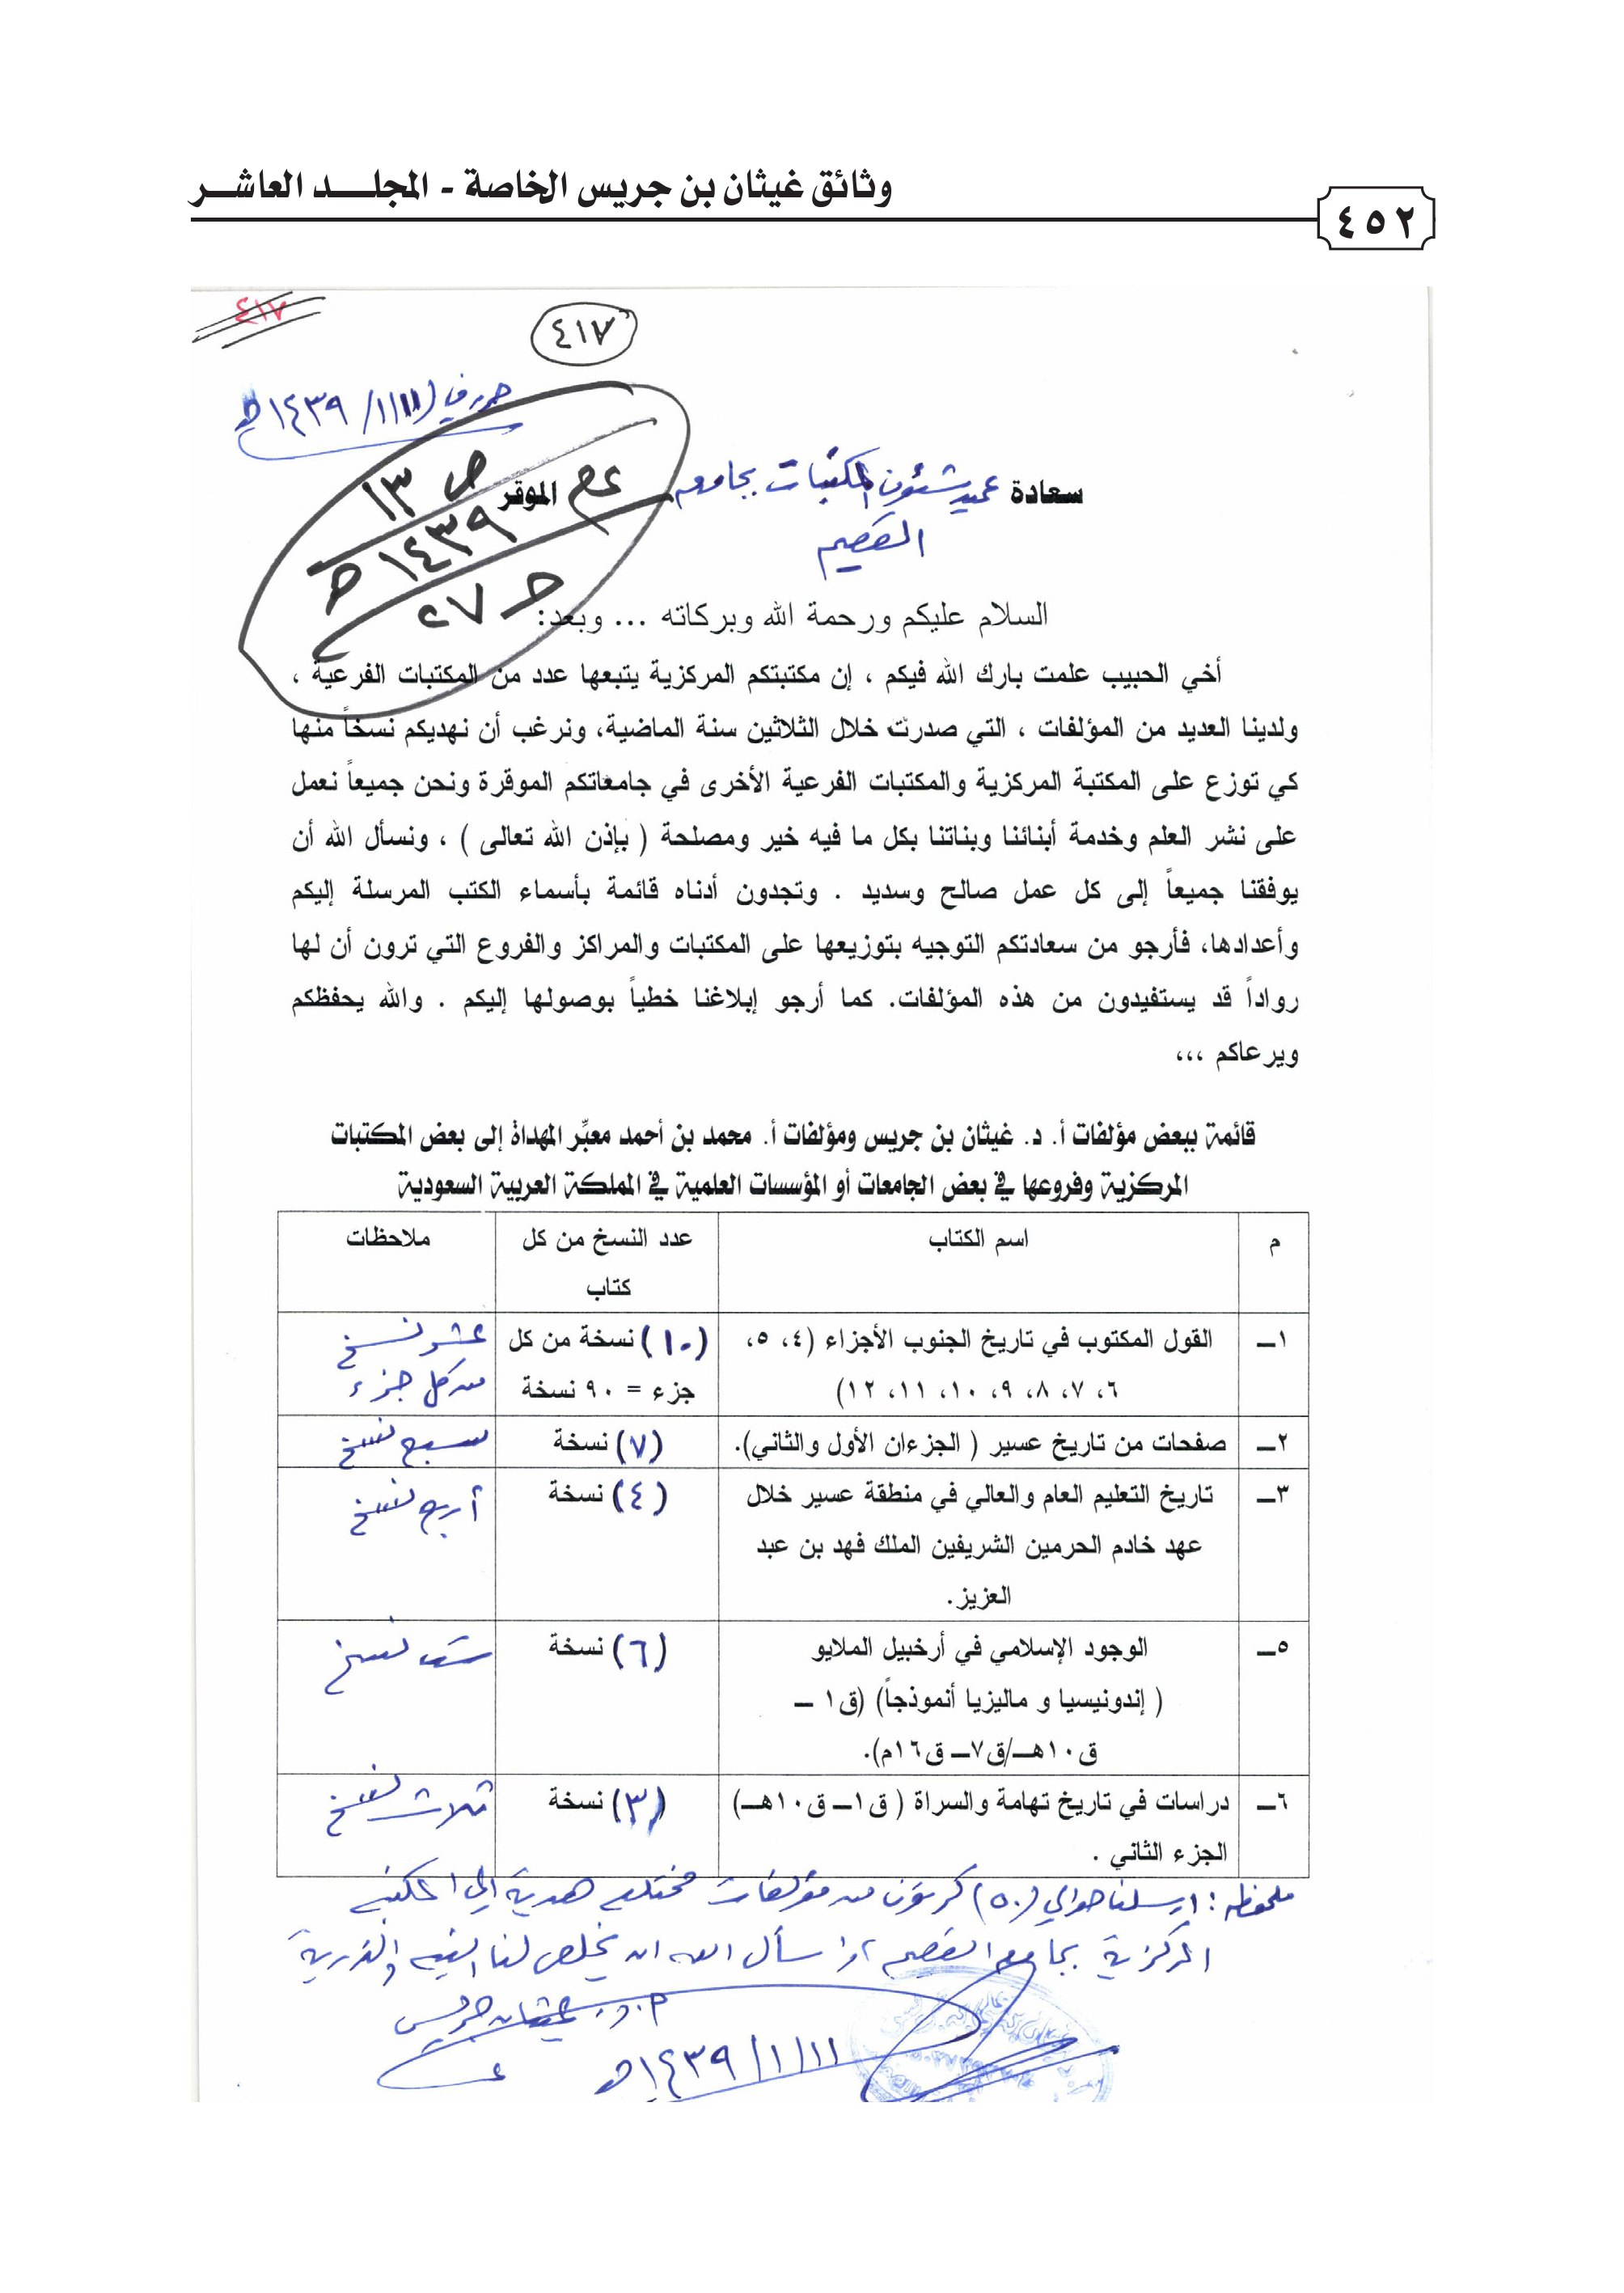 وثائق غيثان بن جريس الخاصة - المجلد العاشر
٤٥٢
٤١٧
٤١٧
حرر في ١١/١/١٤٣٩هـ
ص ١٣
١٤٣٩هـ
ح ٢٧
سعادة عميد شئون المكتبات بجامعة الموقر
القصيم
السلام عليكم ورحمة الله وبركاته ... وبعد:
أخي الحبيب علمت بارك الله فيكم ، إن مكتبتكم المركزية يتبعها عدد من المكتبات الفرعية ،
ولدينا العديد من المؤلفات ، التي صدرت خلال الثلاثين سنة الماضية، ونرغب أن نهديكم نسخاً منها
كي توزع على المكتبة المركزية والمكتبات الفرعية الأخرى في جامعاتكم الموقرة ونحن جميعاً نعمل
على نشر العلم وخدمة أبنائنا وبناتنا بكل ما فيه خير ومصلحة ( بإذن الله تعالى ) ، ونسأل الله أن
يوفقنا جميعاً إلى كل عمل صالح وسديد . وتجدون أدناه قائمة بأسماء الكتب المرسلة إليكم
وأعدادها، فأرجو من سعادتكم التوجيه بتوزيعها على المكتبات والمراكز والفروع التي ترون أن لها
رواداً قد يستفيدون من هذه المؤلفات. كما أرجو إبلاغنا خطياً بوصولها إليكم . والله يحفظكم
ويرعاكم ،،،
قائمة ببعض مؤلفات أ. د. غيثان بن جريس ومؤلفات أ. محمد بن أحمد معبِّر المهداة إلى بعض المكتبات
المركزية وفروعها في بعض الجامعات أو المؤسسات العلمية في المملكة العربية السعودية
م اسم الكتاب عدد النسخ من كل ملاحظات
كتاب
١ـ القول المكتوب في تاريخ الجنوب الأجزاء (٤، ٥، (١٠) نسخة من كل عشر نسخ
٦، ٧، ٨، ٩، ١٠، ١١، ١٢) جزء = ٩٠ نسخة من كل جزء
٢ـ صفحات من تاريخ عسير ( الجزءان الأول والثاني). (٧) نسخة سبع نسخ
٣ـ تاريخ التعليم العام والعالي في منطقة عسير خلال (٤) نسخة أربع نسخ
عهد خادم الحرمين الشريفين الملك فهد بن عبد
العزيز.
٥ـ الوجود الإسلامي في أرخبيل الملايو (٦) نسخة ست نسخ
( إندونيسيا و ماليزيا أنموذجاً) (ق١ ـ
ق١٠هـ/ق٧ـ ق١٦م).
٦ـ دراسات في تاريخ تهامة والسراة ( ق١ـ ق١٠هـ) (٣) نسخة ثلاث نسخ
الجزء الثاني .
ملحوظة : ارسلنا حوالي (٥٠) كرتون من مؤلفات مختلفة هدية إلى المكتبة
المركزية بجامعة القصيم اسأل الله ان يخلص لنا النية والذرية
أ. د. غيثان جريس
١١/١/١٤٣٩هـ